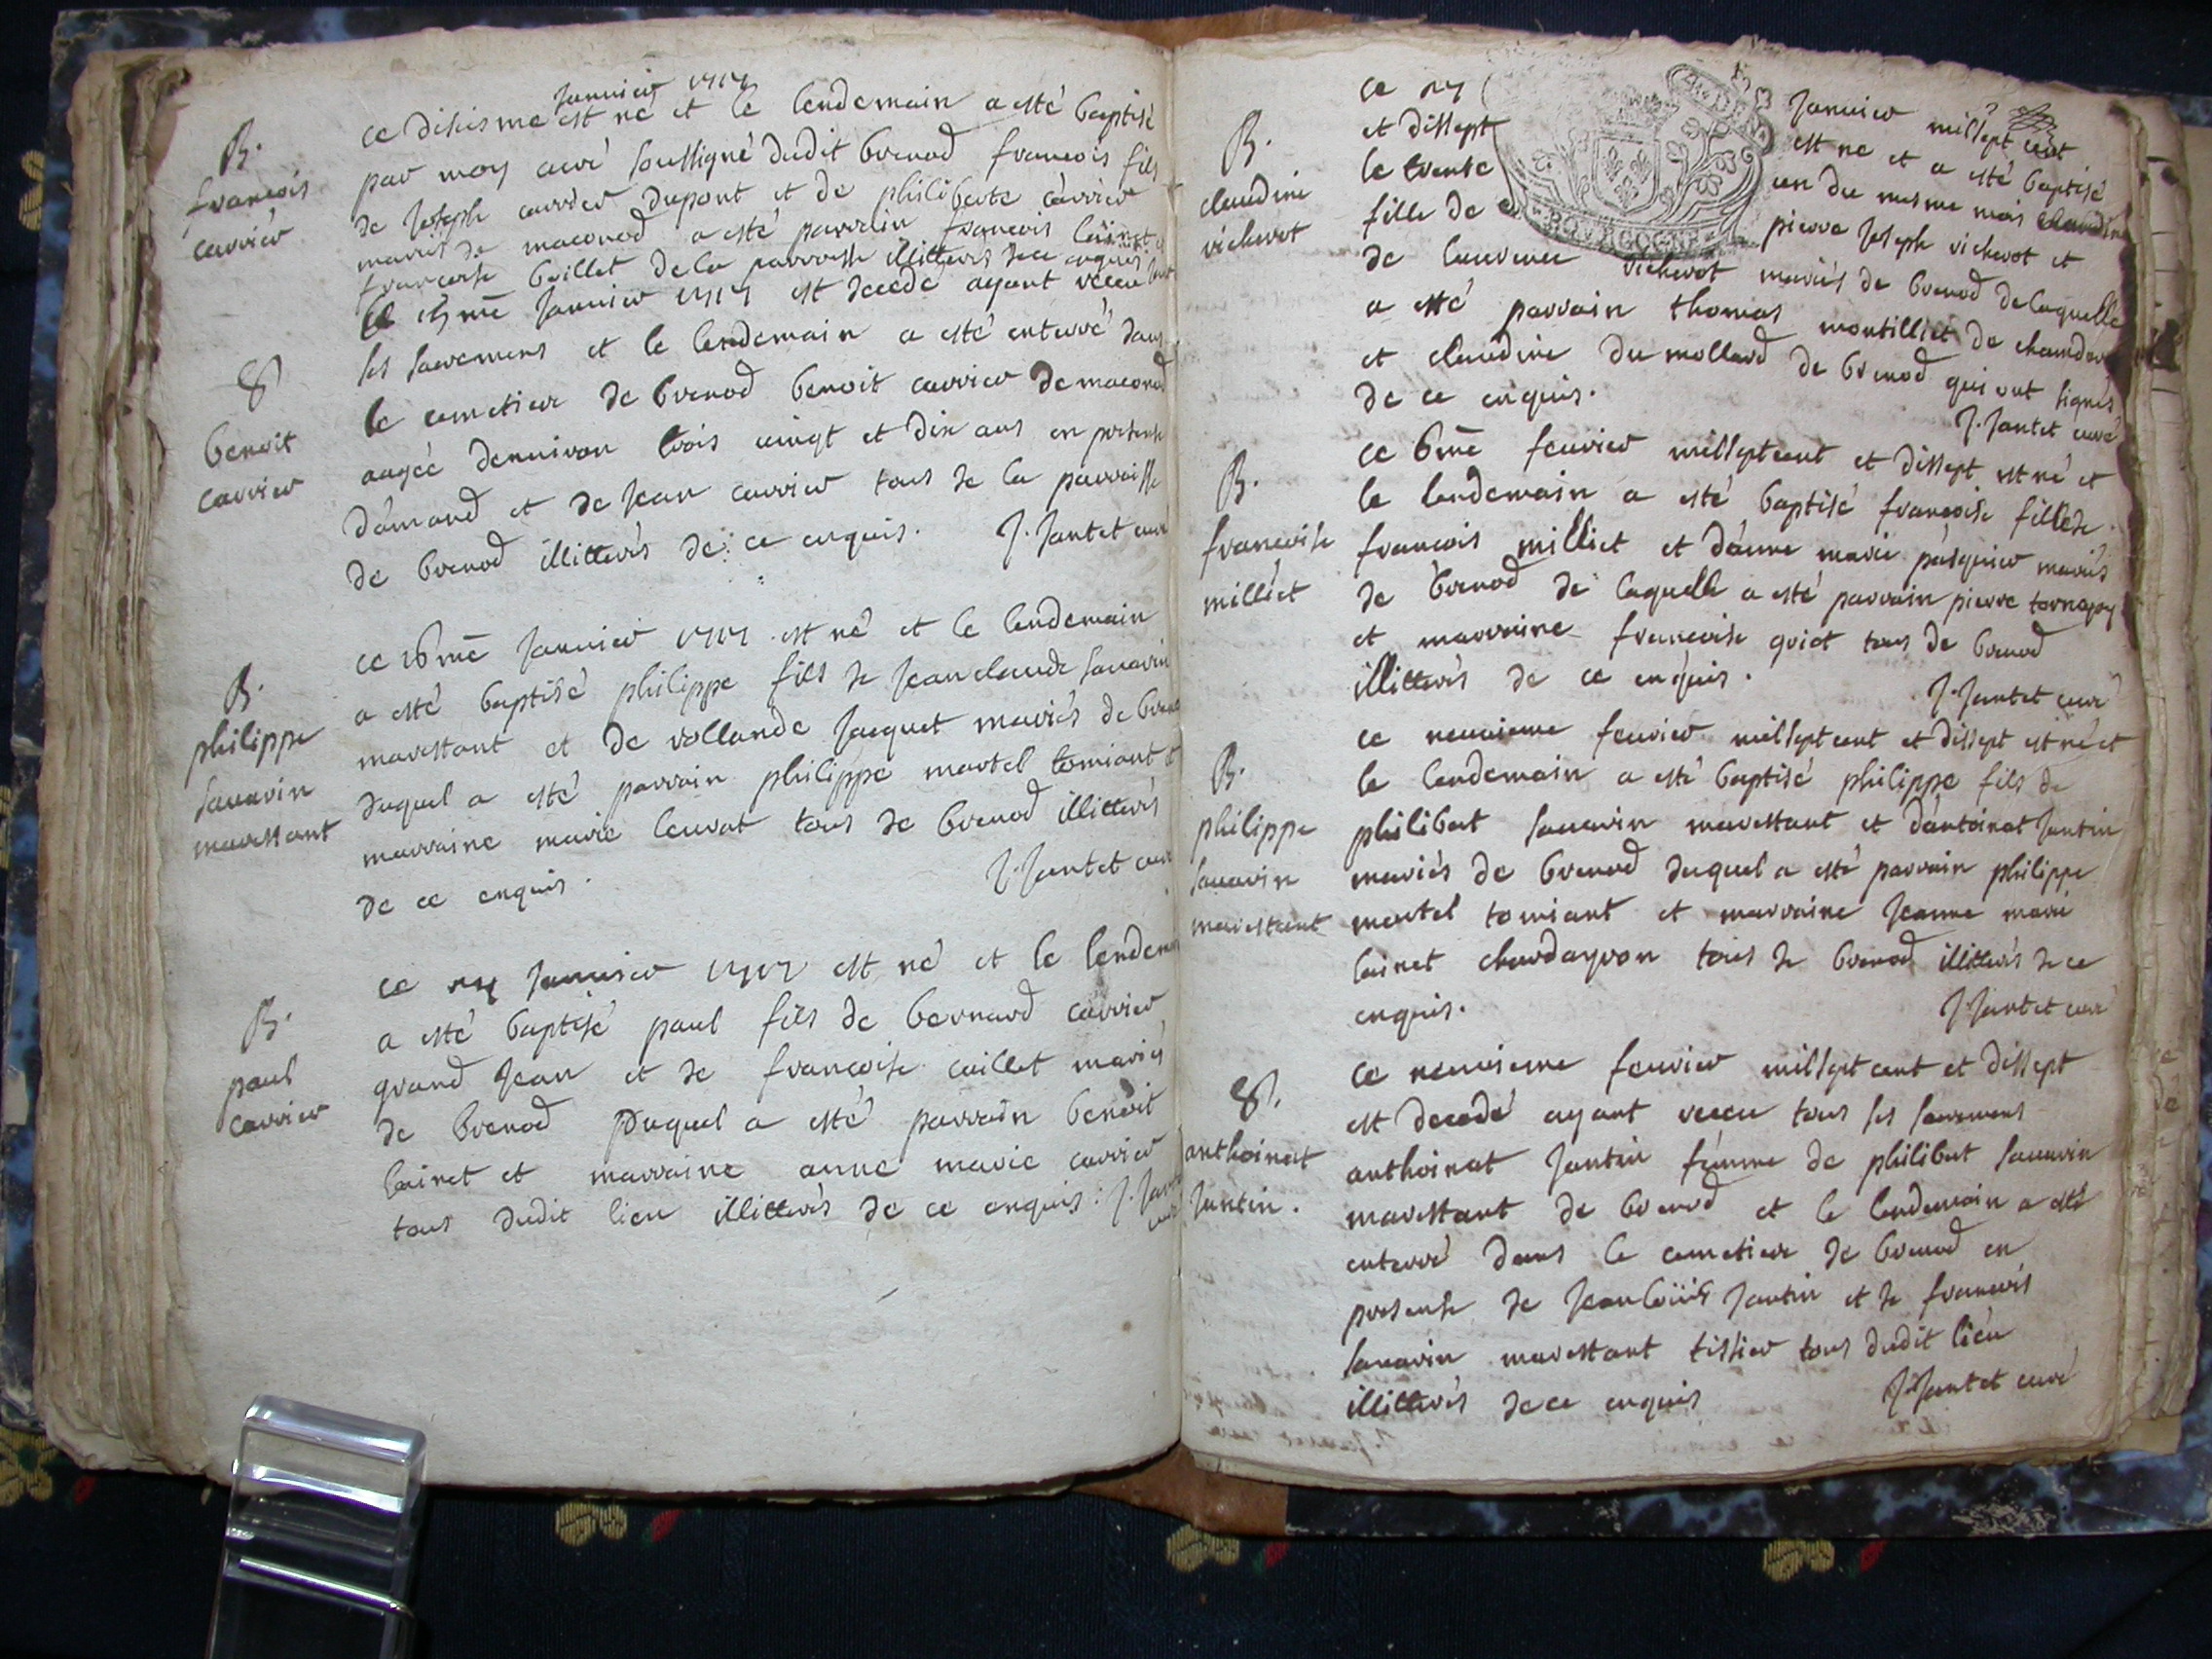 B.
françois
carrier
janvier 1717
ce disiesme est né et le lendemain a esté baptisé
par moy curé soussigné dudit brenod francois fils
de joseph carrier dupont et de philiberte carrier
mariés de maconod a esté parrain francois
francoise baillet de la parroisse illitterés de ce enquis
8
benoit
carrier
janvier 1717 est decede ayant receu
ses sacremens et le lendemain a esté enterré dans
le cemetiere de brenod benoit carrier de maconod
aagée denuiron trois uingt et dix ans en presense
damand et de jean carrier tous de la parroisse
de brenod illitterés de ce enquis. J. Jantet curé
B.
philippe
sauarin
marestant
ce 16me janvier 1717 est né et le lendemain
a esté baptisé philippe fils de jean claude sauarin
marestant et de rollande jacquet mariés de brenod
duquel a esté parrain philippe martel tomiant et
marraine marie leurat tous de brenod illitterés
de ce enquis. J. Jantet curé
B.
paul
carrier
ce janvier 1717 est né et le lendemain
a esté baptisé paul fils de bernard carrier
grand jean et de françoise caillet mariés
de brenod duquel a esté parrain benoit
lairet et marraine anne marie carrier
tous dudit lieu illitterés de ce enquis. J. Jantet
curé
B.
claudine
vicherot
ce janvier mil sept cent
et dissept est ne et a esté baptisé
le trente un du mesme mois claudine
fille de pierre joseph vicherot et
BOVRGOGNE
de vicherot mariés de brenod de laquelle
a esté parrain thomas montilliet de
et claudine du mollard de brenod qui ont signés
de ce enquis.
J. Jantet curé
B.
francoise
milliet
ce 6me feurier mil sept cent et dissept est né et
le lendemain a esté baptisé francoise fille de
francois milliet et danne marie pasquier mariés
de brenod de laquelle a esté parrain pierre
et marraine francoise goiet tous de brenod
illitterés de ce enquis.
J. Jantet curé
B.
philippe
sauarin
marestant
ce neuuieme feurier mil sept cent et dissept est né et
le lendemain a esté baptisé philippe fils de
philibert sauarin marestant et dantoinat jantin
mariés de brenod duquel a esté parrain philippe
martel tomiant et marraine jeanne marie
lairet chardayron tous de brenod illitterés de ce
enquis. J. Jantet curé
8.
anthoinat
jantin.
ce neuuieme feurier mil sept cent et dissept
est decedé ayant receu tous ses sacremens
anthoinat jantin femme de philibert sauarin
marestant de brenod et le lendemain a esté
enterré dans le cemetiere de brenod en
presense de jean loüis jantin et de francois
sauarin marestant tissier tous dudit lieu
illitterés de ce enquis J. Jantet curé